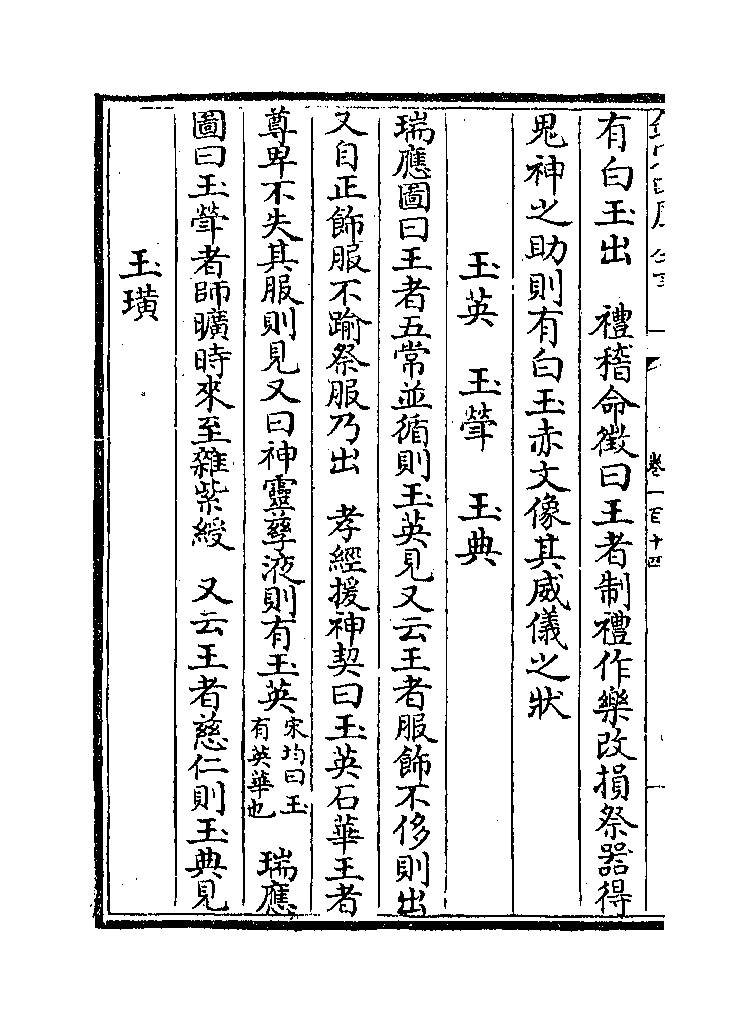 卷一百十四
有白玉出　禮稽命徵曰王者制禮作樂改損祭器得
鬼神之助則有白玉赤文像其威儀之狀
玉英　玉䔄　玉典
瑞應圖曰王者五常並循則玉英見又云王者服飾不侈則出
又自正飾服不踰祭服乃出　孝經援神契曰玉英石華王者
尊卑不失其服則見又曰神靈孳液則有玉英宋均曰玉有英華也　瑞應
圖曰玉䔄者師曠時來至雜紫綬　又云王者慈仁則玉典見
玉璜